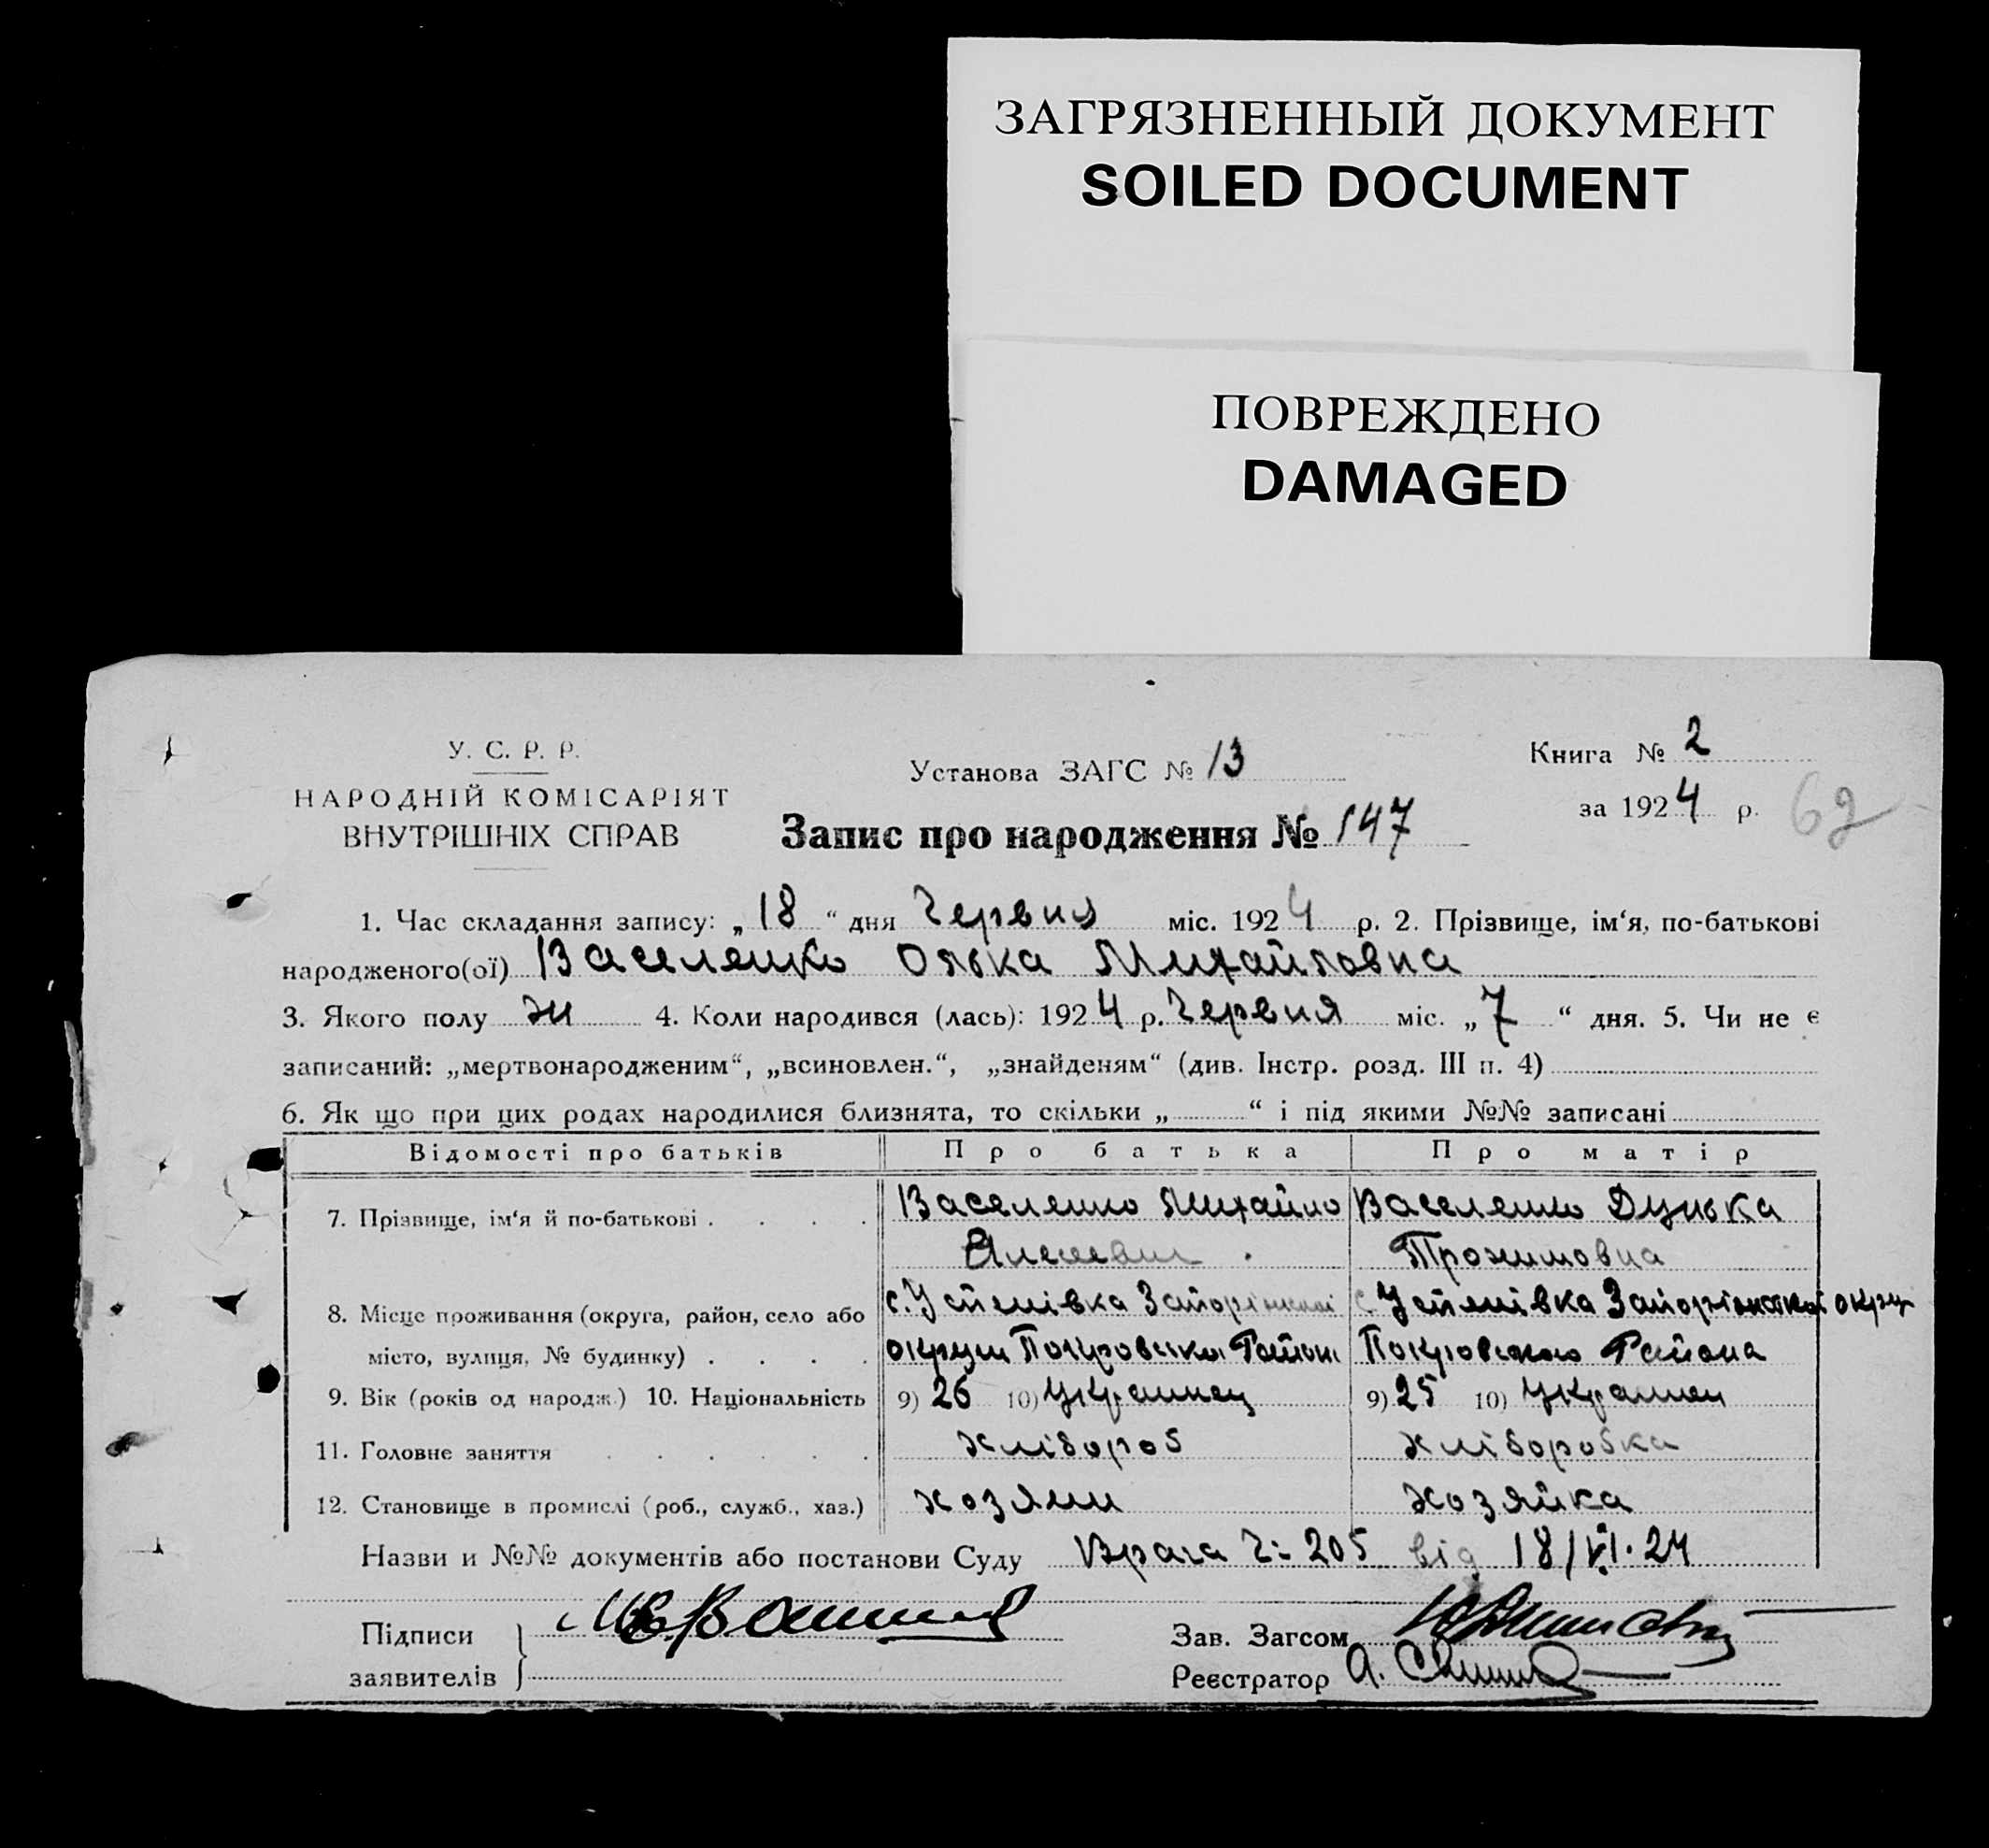 ЗАГРЯЗНЕННЫЙ ДОКУМЕНТ
SOILED DOCUMENT
ПОВРЕЖДЕНО
DAMAGED
У. С. Р. Р.
НАРОДНІЙ КОМІСАРІЯТ
ВНУТРІШНІХ СПРАВ
Установа ЗАГС № 13
Книга № 2
за 1924 р. 62
Запис про народження № 147
1. Час складання запису: „18“ дня Червня міс. 1924 р. 2. Прізвище, ім‘я, по-батькові
народженого(ої) Васеленко Олька Михайловна
3. Якого полу жи 4. Коли народився (лась): 1924 р. Червня міс. „7“ дня. 5. Чи не є
записаний: „мертвонародженим“, „всиновлен.“, „знайденям“ (див. Інстр. розд. III п. 4)
6. Як що при цих родах народилися близнята, то скільки „ “ і під якими №№ записані
Відомості про батьків Про батька Про матір
7. Прізвище, ім‘я й по-батькові . . . . Васеленко Михайло Васеленко Дунька
Трохимовна
8. Місце проживання (округа, район, село або с. Успенівка Запоріжської с. Успенівка Запоріжської округи
місто, вулиця, № будинку) . . . . округи Покровська Района Покровського Района
9. Вік (років од народж.) 10. Національність 9) 26 10) Украинец 9) 25 10) Украинец
11. Головне заняття . . . . . . хлібороб хліборобка
12. Становище в промислі (роб., служб., хаз.) хозяин хозяйка
Назви и №№ документів або постанови Суду Ч: 205 від 18/VI.24
Підписи
заявителів
Зав. Загсом
Реєстратор А.